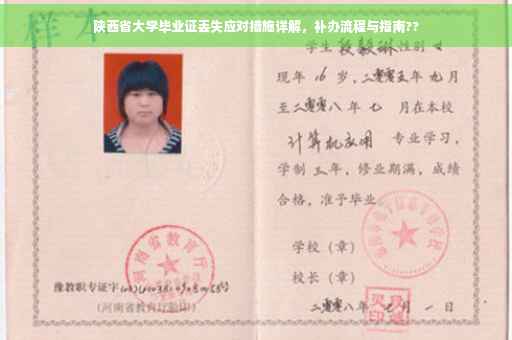 陕西省大学毕业证丢失应对措施详解，补办流程与指南??
样本
学生 段毅琳 性别 女
现年 16 岁，二零零五年 九月
至二零零八年 七 月在本校
计算机应用 专业学习，
学制 三年，修业期满，成绩
合格，准予毕业
学校（章）
校长（章）
二零零八年 七 月 一 日
河南省教育厅
豫教职专证字
（河南省教育厅验印）